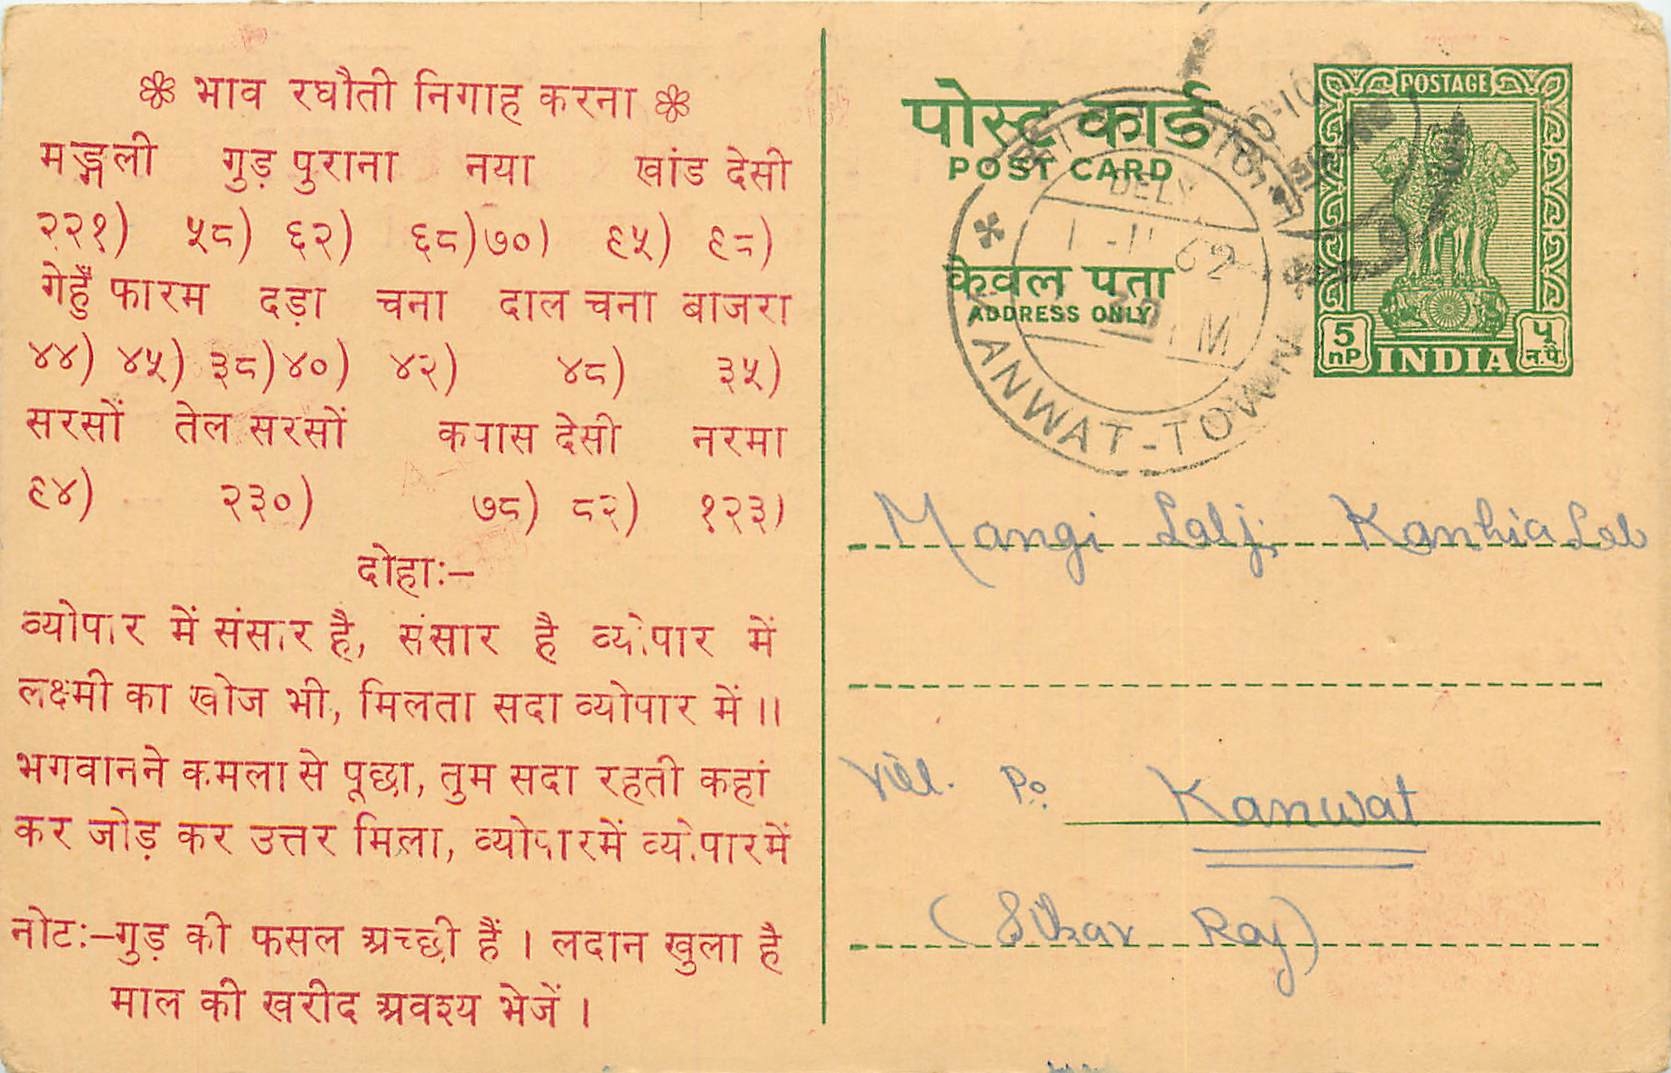 भाव रघौती निगाह करना
मङ्गली गुड़ पुराना नया खांड देसी
२२१) ५८) ६२) ६८) ७०) ९५) ९८)
गेहूँ फारम दड़ा चना दाल चना बाजरा
४४) ४५) ३८) ४०) ४२) ४८) ३५)
सरसों तेल सरसों कपास देसी नरमा
९४) २३०) ७८) ८२) १२३)
दोहा:–
व्योपार में संसार है, संसार है व्योपार में
लक्ष्मी का खोज भी, मिलता सदा व्योपार में ।।
भगवानने कमला से पूछा, तुम सदा रहती कहां
कर जोड़ कर उत्तर मिला, व्योपारमें व्योपारमें
नोट:–गुड़ की फसल अच्छी हैं । लदान खुला है
माल की खरीद अवश्य भेजें ।
पोस्ट कार्ड
POST CARD
केवल पता
ADDRESS ONLY
POSTAGE
5 nP
INDIA
५ न.पै.
DELY
62
KANWAT-TOWN
Mangi Lalji Kanhia Lal
Vill. Po. Kanwat
(Sikar Raj)